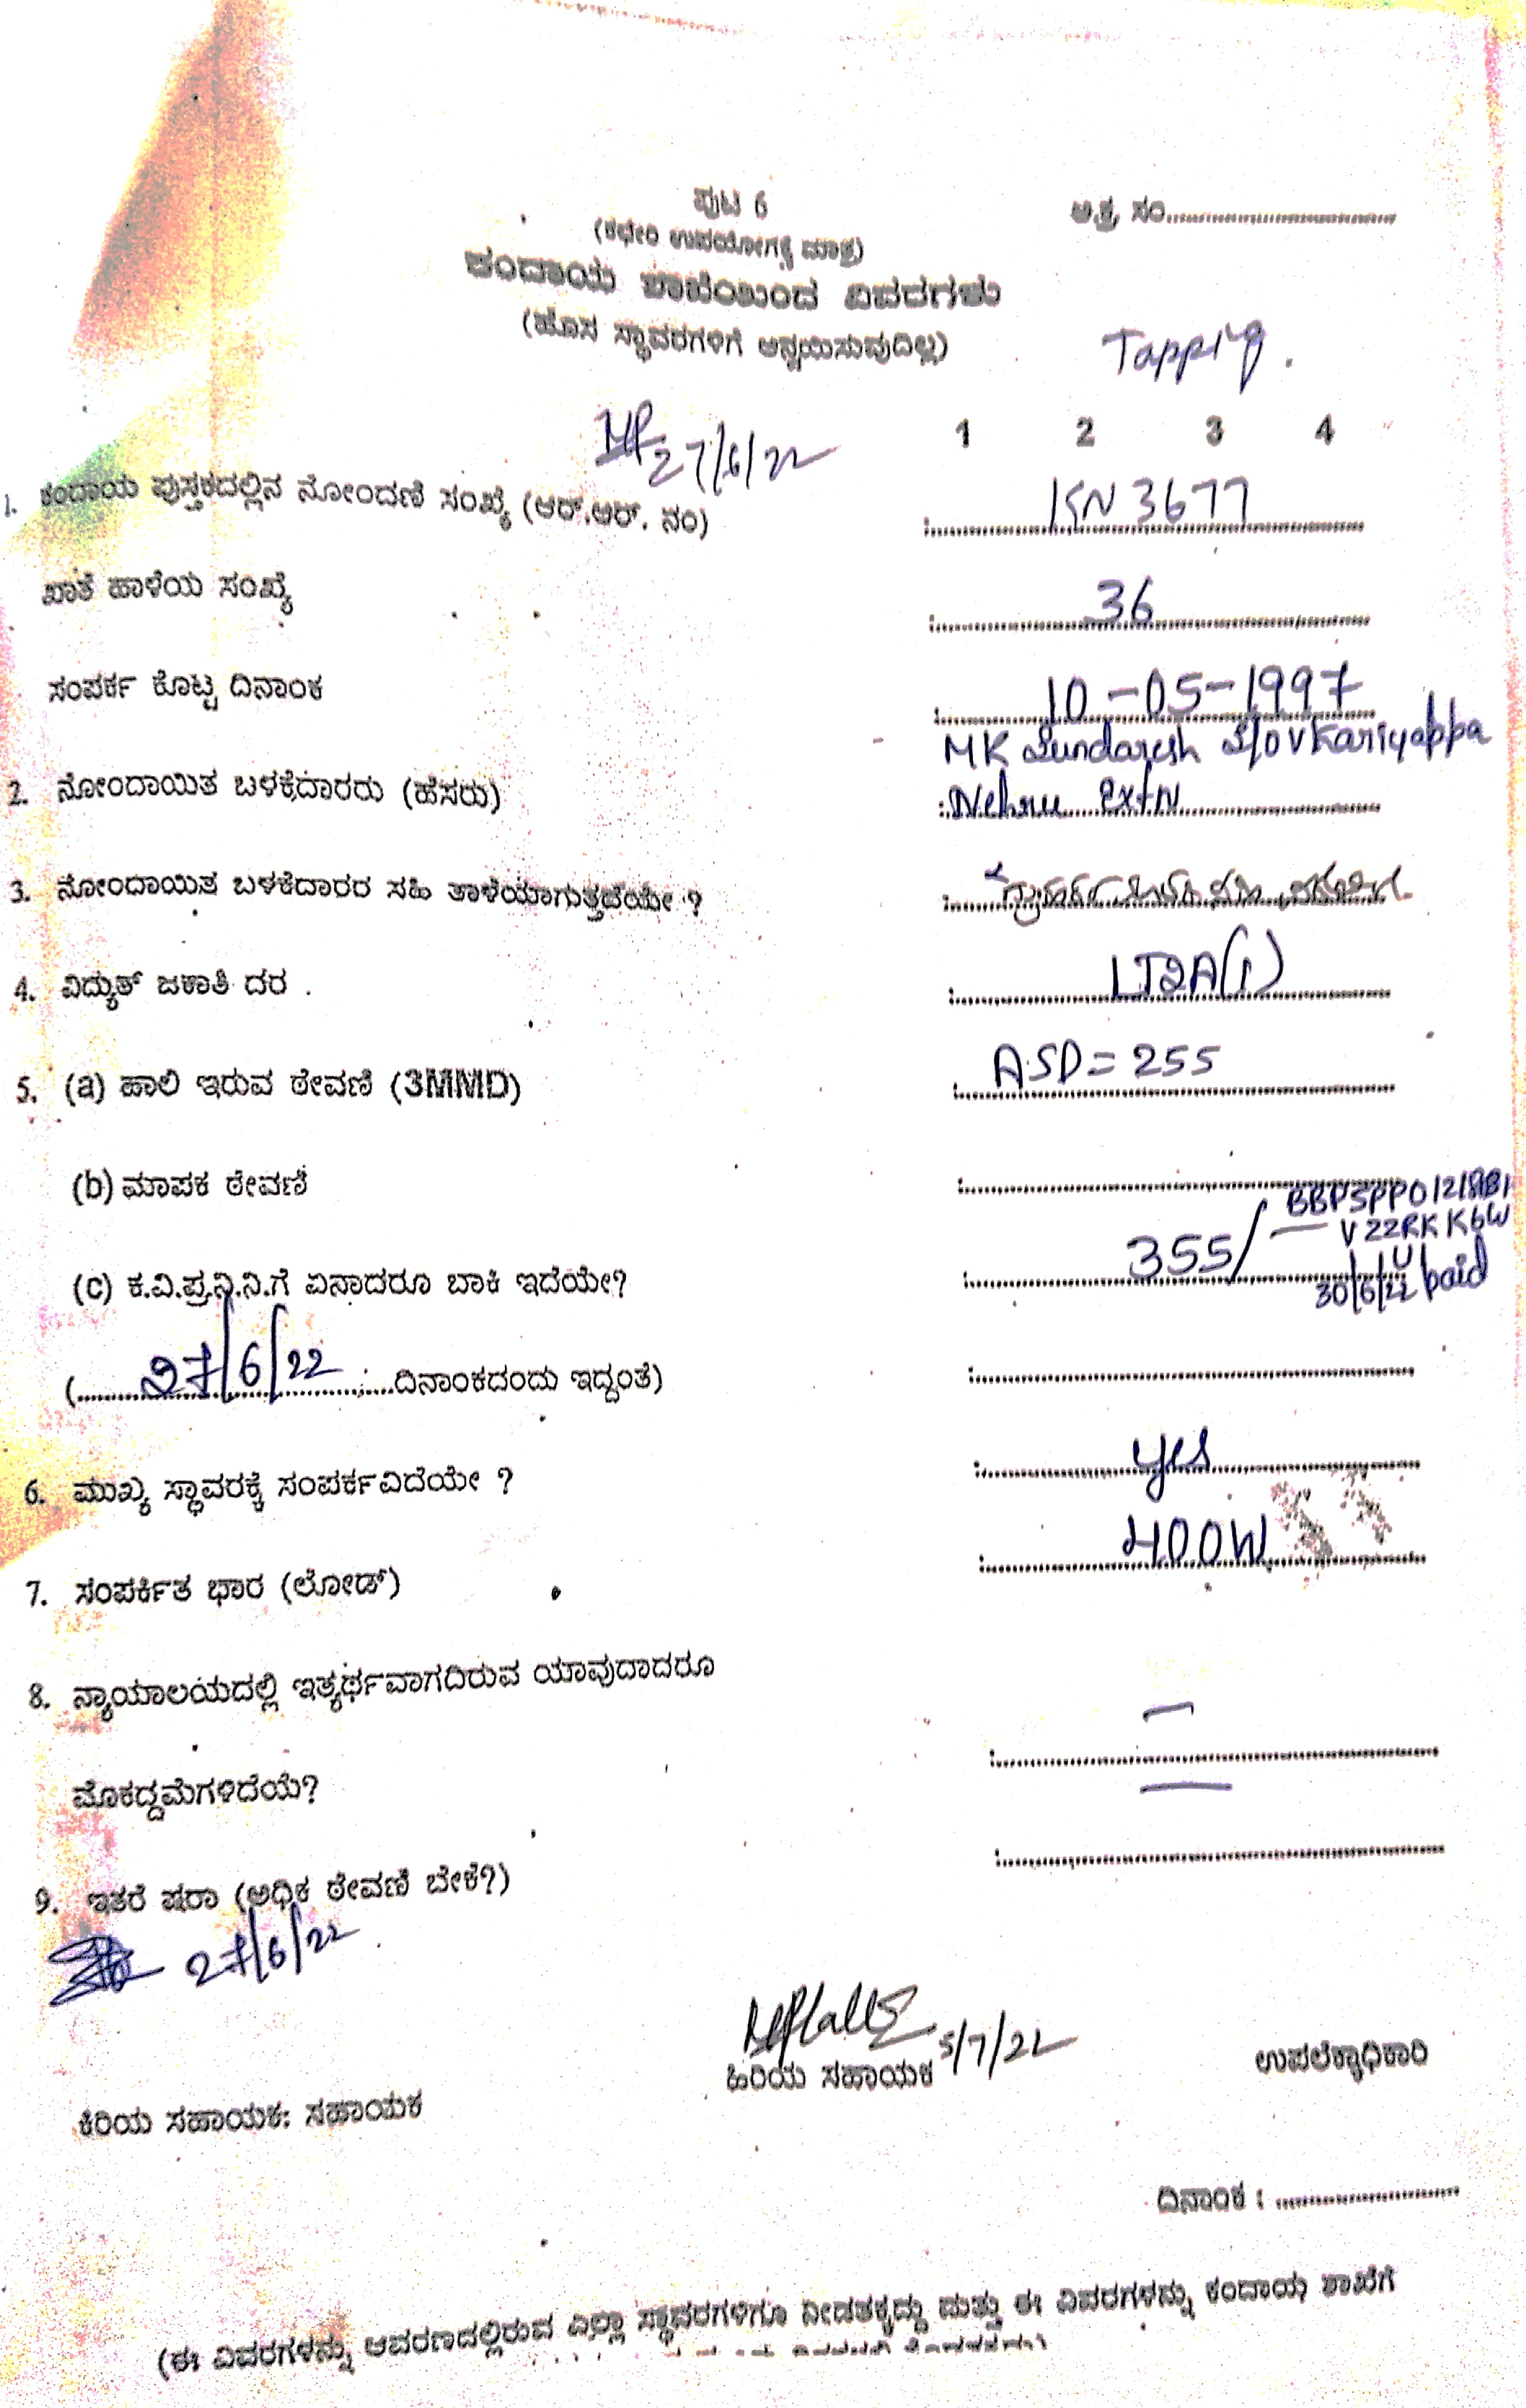 ಪುಟ 6
ಅ.ಕ್ರ. ಸಂ..............................
(ಕಛೇರಿ ಉಪಯೋಗಕ್ಕೆ ಮಾತ್ರ)
ಕಂದಾಯ ಶಾಖೆಯಿಂದ ವಿವರಗಳು
(ಹೊಸ ಸ್ಥಾವರಗಳಿಗೆ ಅನ್ವಯಿಸುವುದಿಲ್ಲ)
Tapping.
27/6/22
1 2 3 4
1. ಕಂದಾಯ ಪುಸ್ತಕದಲ್ಲಿನ ನೋಂದಣಿ ಸಂಖ್ಯೆ (ಆರ್.ಆರ್. ನಂ) : KN 3677
ಖಾತೆ ಹಾಳೆಯ ಸಂಖ್ಯೆ : 36
ಸಂಪರ್ಕ ಕೊಟ್ಟ ದಿನಾಂಕ : 10-05-1997
MK Sundaresh S/o V Kariyappa
2. ನೋಂದಾಯಿತ ಬಳಕೆದಾರರು (ಹೆಸರು) : Nehru extN
3. ನೋಂದಾಯಿತ ಬಳಕೆದಾರರ ಸಹಿ ತಾಳೆಯಾಗುತ್ತದೆಯೇ ?
4. ವಿದ್ಯುತ್ ಜಕಾತಿ ದರ . : LT2A(1)
5. (a) ಹಾಲಿ ಇರುವ ಠೇವಣಿ (3MMD) : ASD = 255
(b) ಮಾಪಕ ಠೇವಣಿ :
(c) ಕ.ವಿ.ಪ್ರ.ನಿ.ನಿ.ಗೆ ಏನಾದರೂ ಬಾಕಿ ಇದೆಯೇ? : 355/—
30/6/22 paid
(27/6/22 ದಿನಾಂಕದಂದು ಇದ್ದಂತೆ) :
6. ಮುಖ್ಯ ಸ್ಥಾವರಕ್ಕೆ ಸಂಪರ್ಕವಿದೆಯೇ ? : yes
7. ಸಂಪರ್ಕಿತ ಭಾರ (ಲೋಡ್) : 400W
8. ನ್ಯಾಯಾಲಯದಲ್ಲಿ ಇತ್ಯರ್ಥವಾಗದಿರುವ ಯಾವುದಾದರೂ
ಮೊಕದ್ದಮೆಗಳಿದೆಯೆ? : —
9. ಇತರೆ ಷರಾ (ಅಧಿಕ ಠೇವಣಿ ಬೇಕೆ?) : —
27/6/22
5/7/22
ಕಿರಿಯ ಸಹಾಯಕ: ಸಹಾಯಕ
ಹಿರಿಯ ಸಹಾಯಕ
ಉಪಲೆಕ್ಕಾಧಿಕಾರಿ
ದಿನಾಂಕ : ..............................
(ಈ ವಿವರಗಳನ್ನು ಆವರಣದಲ್ಲಿರುವ ಎಲ್ಲಾ ಸ್ಥಾವರಗಳಿಗೂ ನೀಡತಕ್ಕದ್ದು ಮತ್ತು ಈ ವಿವರಗಳನ್ನು ಕಂದಾಯ ಶಾಖೆಗೆ